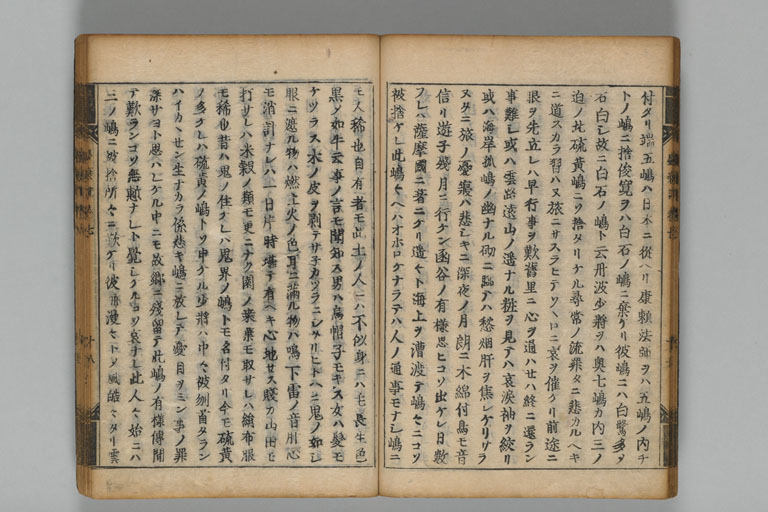 付タリ端五嶋ハ日本ニ從ヘリ康頼法師ヲハ五嶋ノ内チ
トノ嶋ニ捨俊寛ヲハ白石ノ嶋ニ棄ケリ彼嶋ニハ白鷺多ヲ
石白シ故ニ白石ノ嶋ト云丹波少將ヲハ奥七嶋カ内三ノ
迫ノ北硫黄嶋ニソ捨タリケル尋常ノ流罪タニ悲カルヘキ
ニ道スカラ習ハヌ旅ニサスラヒテソヽロニ哀ヲ催ケリ前途ニ
眼ヲ先立レハ早行事ヲ歎舊里ニ心ヲ通ハセハ終ニ還ラン
事難シ或ハ雲路遠山ノ遥ナル粧ヲ見テハ哀涙袖ヲ絞リ
或ハ海岸孤嶋ノ幽ナル砌ニ臨テハ愁烟肝ヲ焦シケリサラ
ヌタニ旅ノ憂寢ハ悲シキニ深夜ノ月朗ニ木綿付鳥モ音
信リ遊子殘月ニ行ケン函谷ノ有様思ヒコソ出ケレ日數
フレハ薩摩國ニ著ニケリ遥々ト海上ヲ漕渡テ嶋々ニコソ
被捨ケレ此嶋々ヘハオホロケナラテハ人ノ通事モナシ嶋ニ
モ人稀也自有者モ此土ノ人ニハ不似身ニハ毛長生色
黒ノ如牛云事ノ言モ聞知ス男ハ烏帽子モキス女ハ髪モ
ケツラス木ノ皮ヲ剥テサネカツラニシタリヒトヘニ鬼ノ如シ
眼ニ遮ル物ハ燃上火ノ色耳ニ満ル物ハ鳴下雷ノ音肝心
モ消計ナレハ一日片時堪テ有ヘキ心地セス賤カ山田モ
打サレハ米穀ノ類モ更ニナク園ノ桑葉モ取サレハ絹布服
モ稀也昔ハ鬼ノ住ケレハ鬼界ノ嶋トモ名付タリ今モ硫黄
ノ多ケレハ硫黄ノ嶋トソ申ケル少將ハ中々被刎首タラン
ハイカヽセン生ナカラ係悲キ嶋ニ放レテ憂目ヲミン事ノ罪
深サヨト思ハレケル中ニモ故郷ニ殘留テ此嶋ノ有様傳聞
テ歎ランコソ無慙ナレト覺シケルコソ哀ナレ此人々始ニハ
三ノ嶋ニ被捨所々ニ歎ケリ彼海漫々トメ風皓々タリ雲